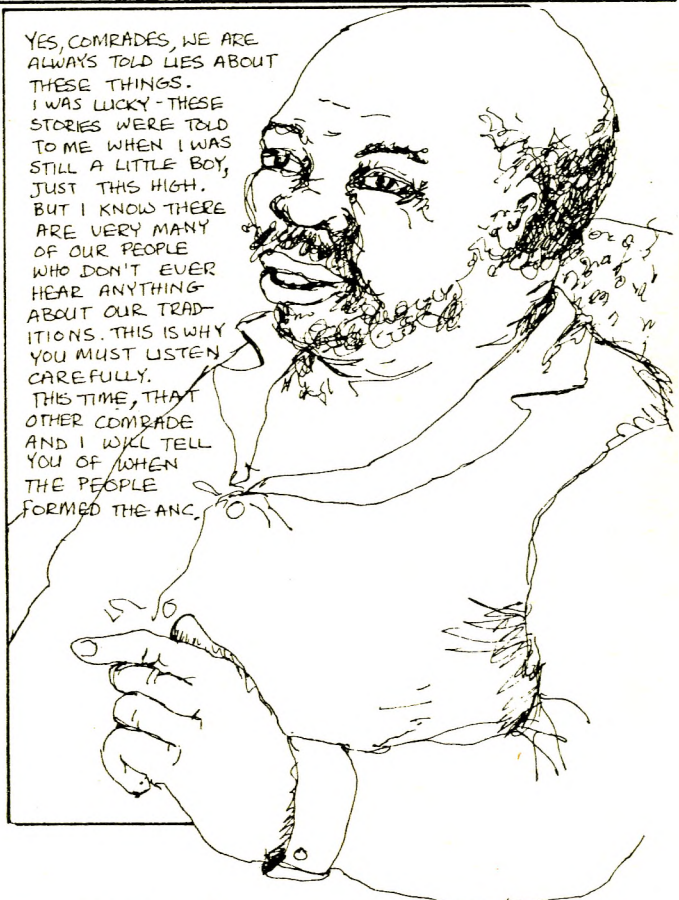 YES, COMRADES, WE ARE
ALWAYS TOLD LIES ABOUT
THESE THINGS.
I WAS LUCKY - THESE
STORIES WERE TOLD
TO ME WHEN I WAS
STILL A LITTLE BOY,
JUST THIS HIGH.
BUT I KNOW THERE
ARE VERY MANY
OF OUR PEOPLE
WHO DON'T EVER
HEAR ANYTHING
ABOUT OUR TRAD-
ITIONS. THIS IS WHY
YOU MUST LISTEN
CAREFULLY.
THIS TIME, THAT
OTHER COMRADE
AND I WILL TELL
YOU OF WHEN
THE PEOPLE
FORMED THE ANC.